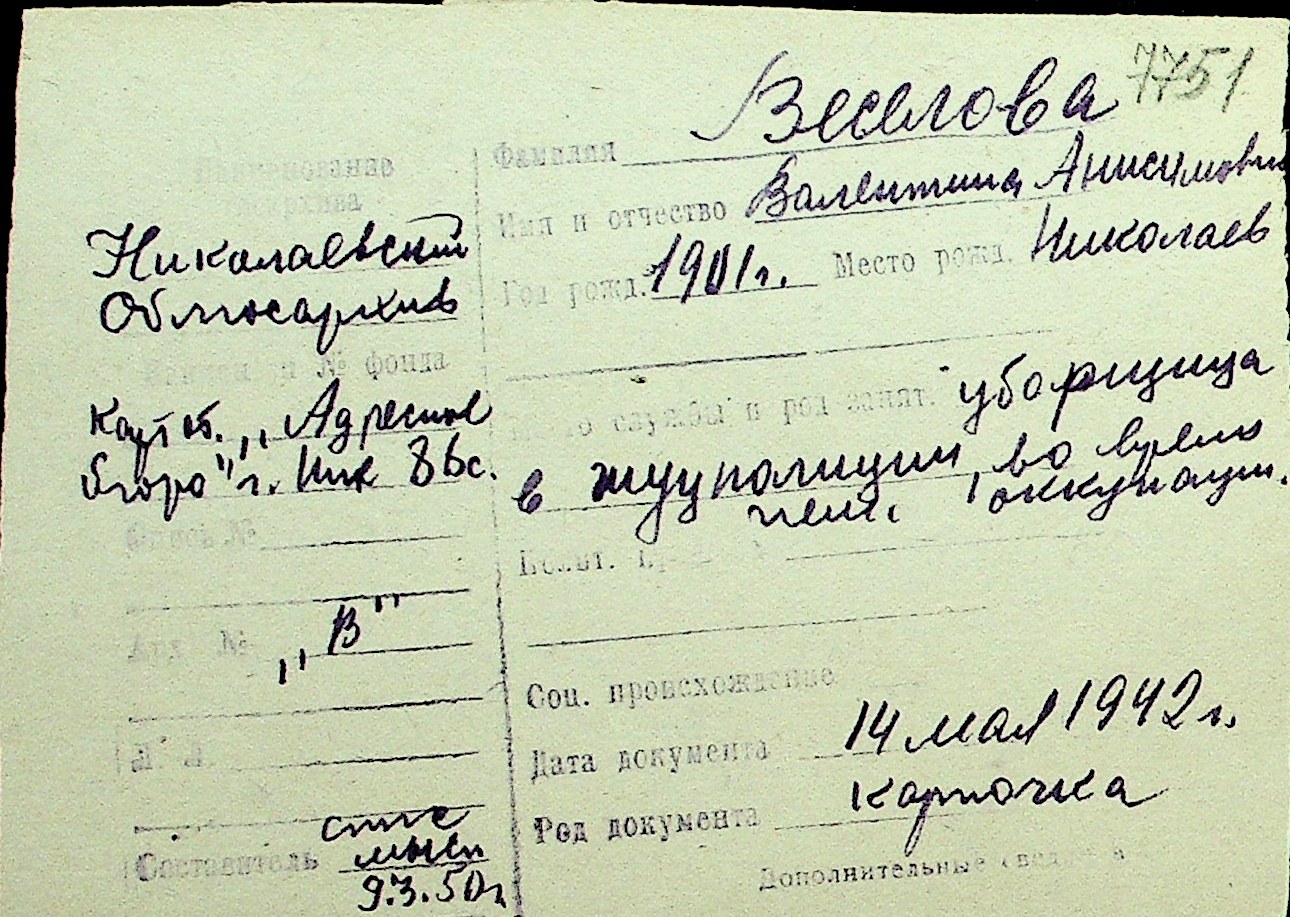 7751
Фамилия Веселова
Имя и отчество Валентина Анисимовн
Год рожд. 1901г. Место рожд. Николаев
Место службы и род занят. уборщица
в полиции, во время
нем. оккупации.
Соц. происхождение
Дата документа 14 мая 1942 г.
Род документа карточка
Дополнительные сведения
Наименование
архива
Николаевский
Облгосархив
№ фонда
Картот. „Адресное
бюро" г. Ник 86с.
Опись №
Арх №
„В"
Л. Л.
Составитель
9.3.50г